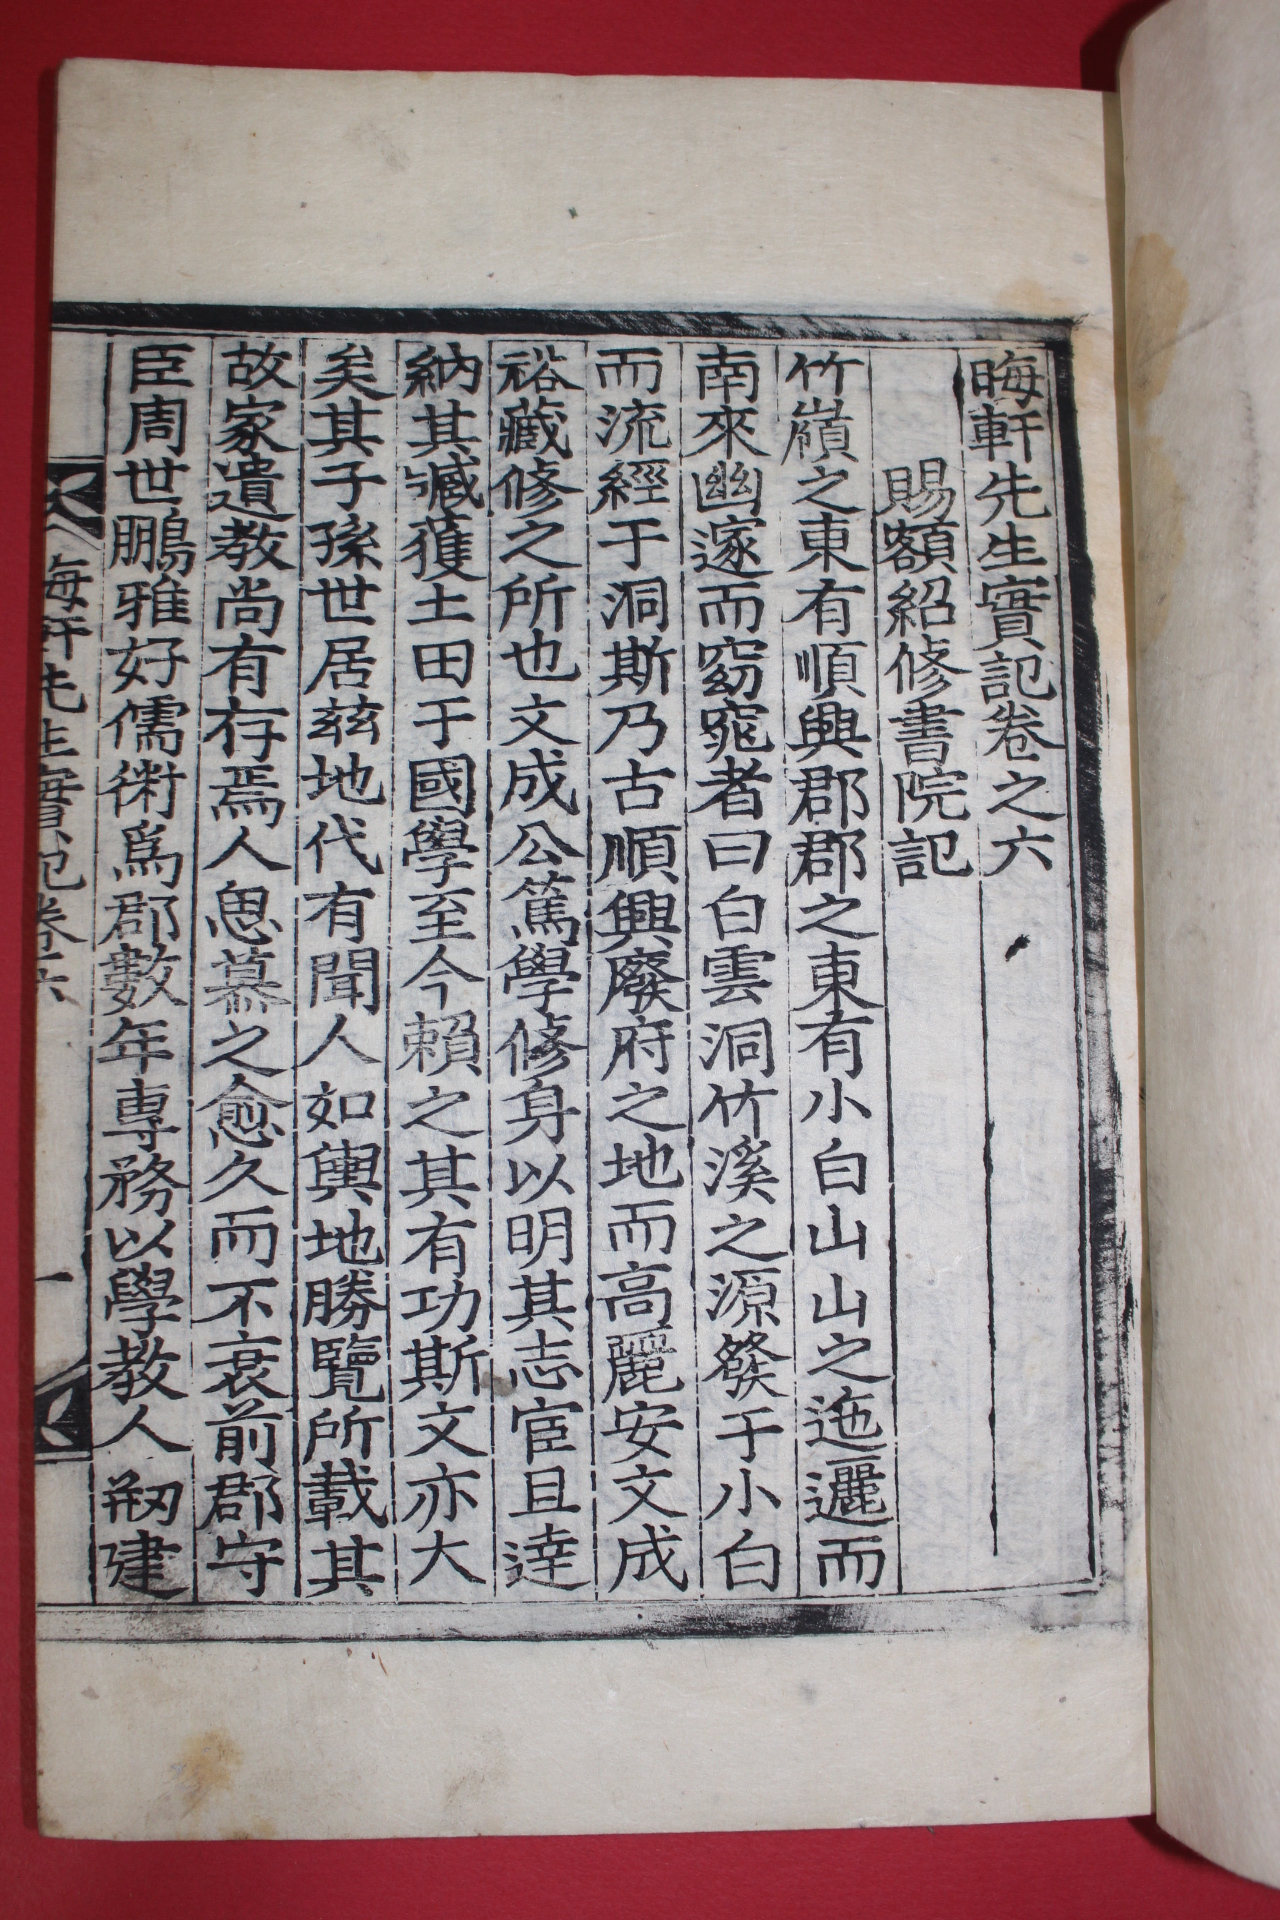 晦軒先生實記卷之六
賜額紹修書院記
竹嶺之東有順興郡郡之東有小白山山之迤邐而
南來幽邃而窈窕者曰白雲洞竹溪之源發于小白
而流經于洞斯乃古順興廢府之地而高麗安文成
裕藏修之所也文成公篤學修身以明其志宦且達
納其臧獲土田于國學至今賴之其有功斯文亦大
矣其子孫世居玆地代有聞人如輿地勝覽所載其
故家遺敎尚有存焉人思慕之愈久而不衰前郡守
臣周世鵬雅好儒術爲郡數年專務以學敎人刱建
晦軒先生實記卷六
一